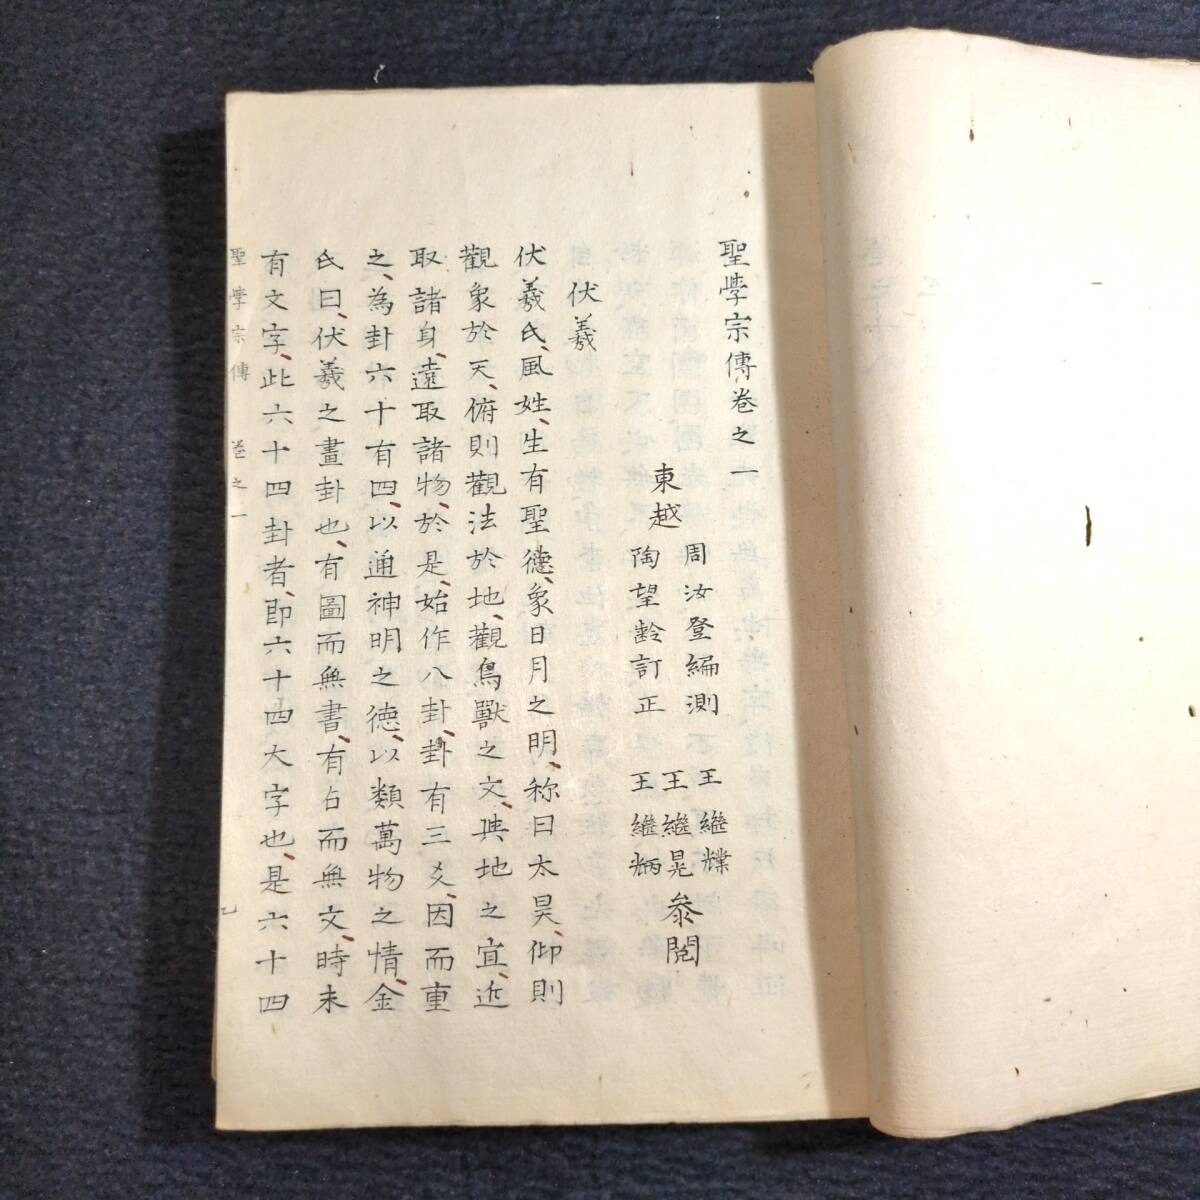 聖學宗傳卷之一
東越
周汝登編測
陶望齡訂正
王繼
王繼晃
王繼炳
參閲
伏羲
伏羲氏、風姓、生有聖德、象日月之明、称曰太昊、仰則
觀象於天、俯則觀法於地、觀鳥獸之文、與地之宜、近
取諸身、遠取諸物、於是、始作八卦、卦有三爻、因而重
之、為卦六十有四、以通神明之德、以類萬物之情、金
氏曰、伏羲之畫卦也、有圖而無書、有占而無文、時未
有文字、此六十四卦者、即六十四大字也、是六十四
聖學宗傳 卷之一